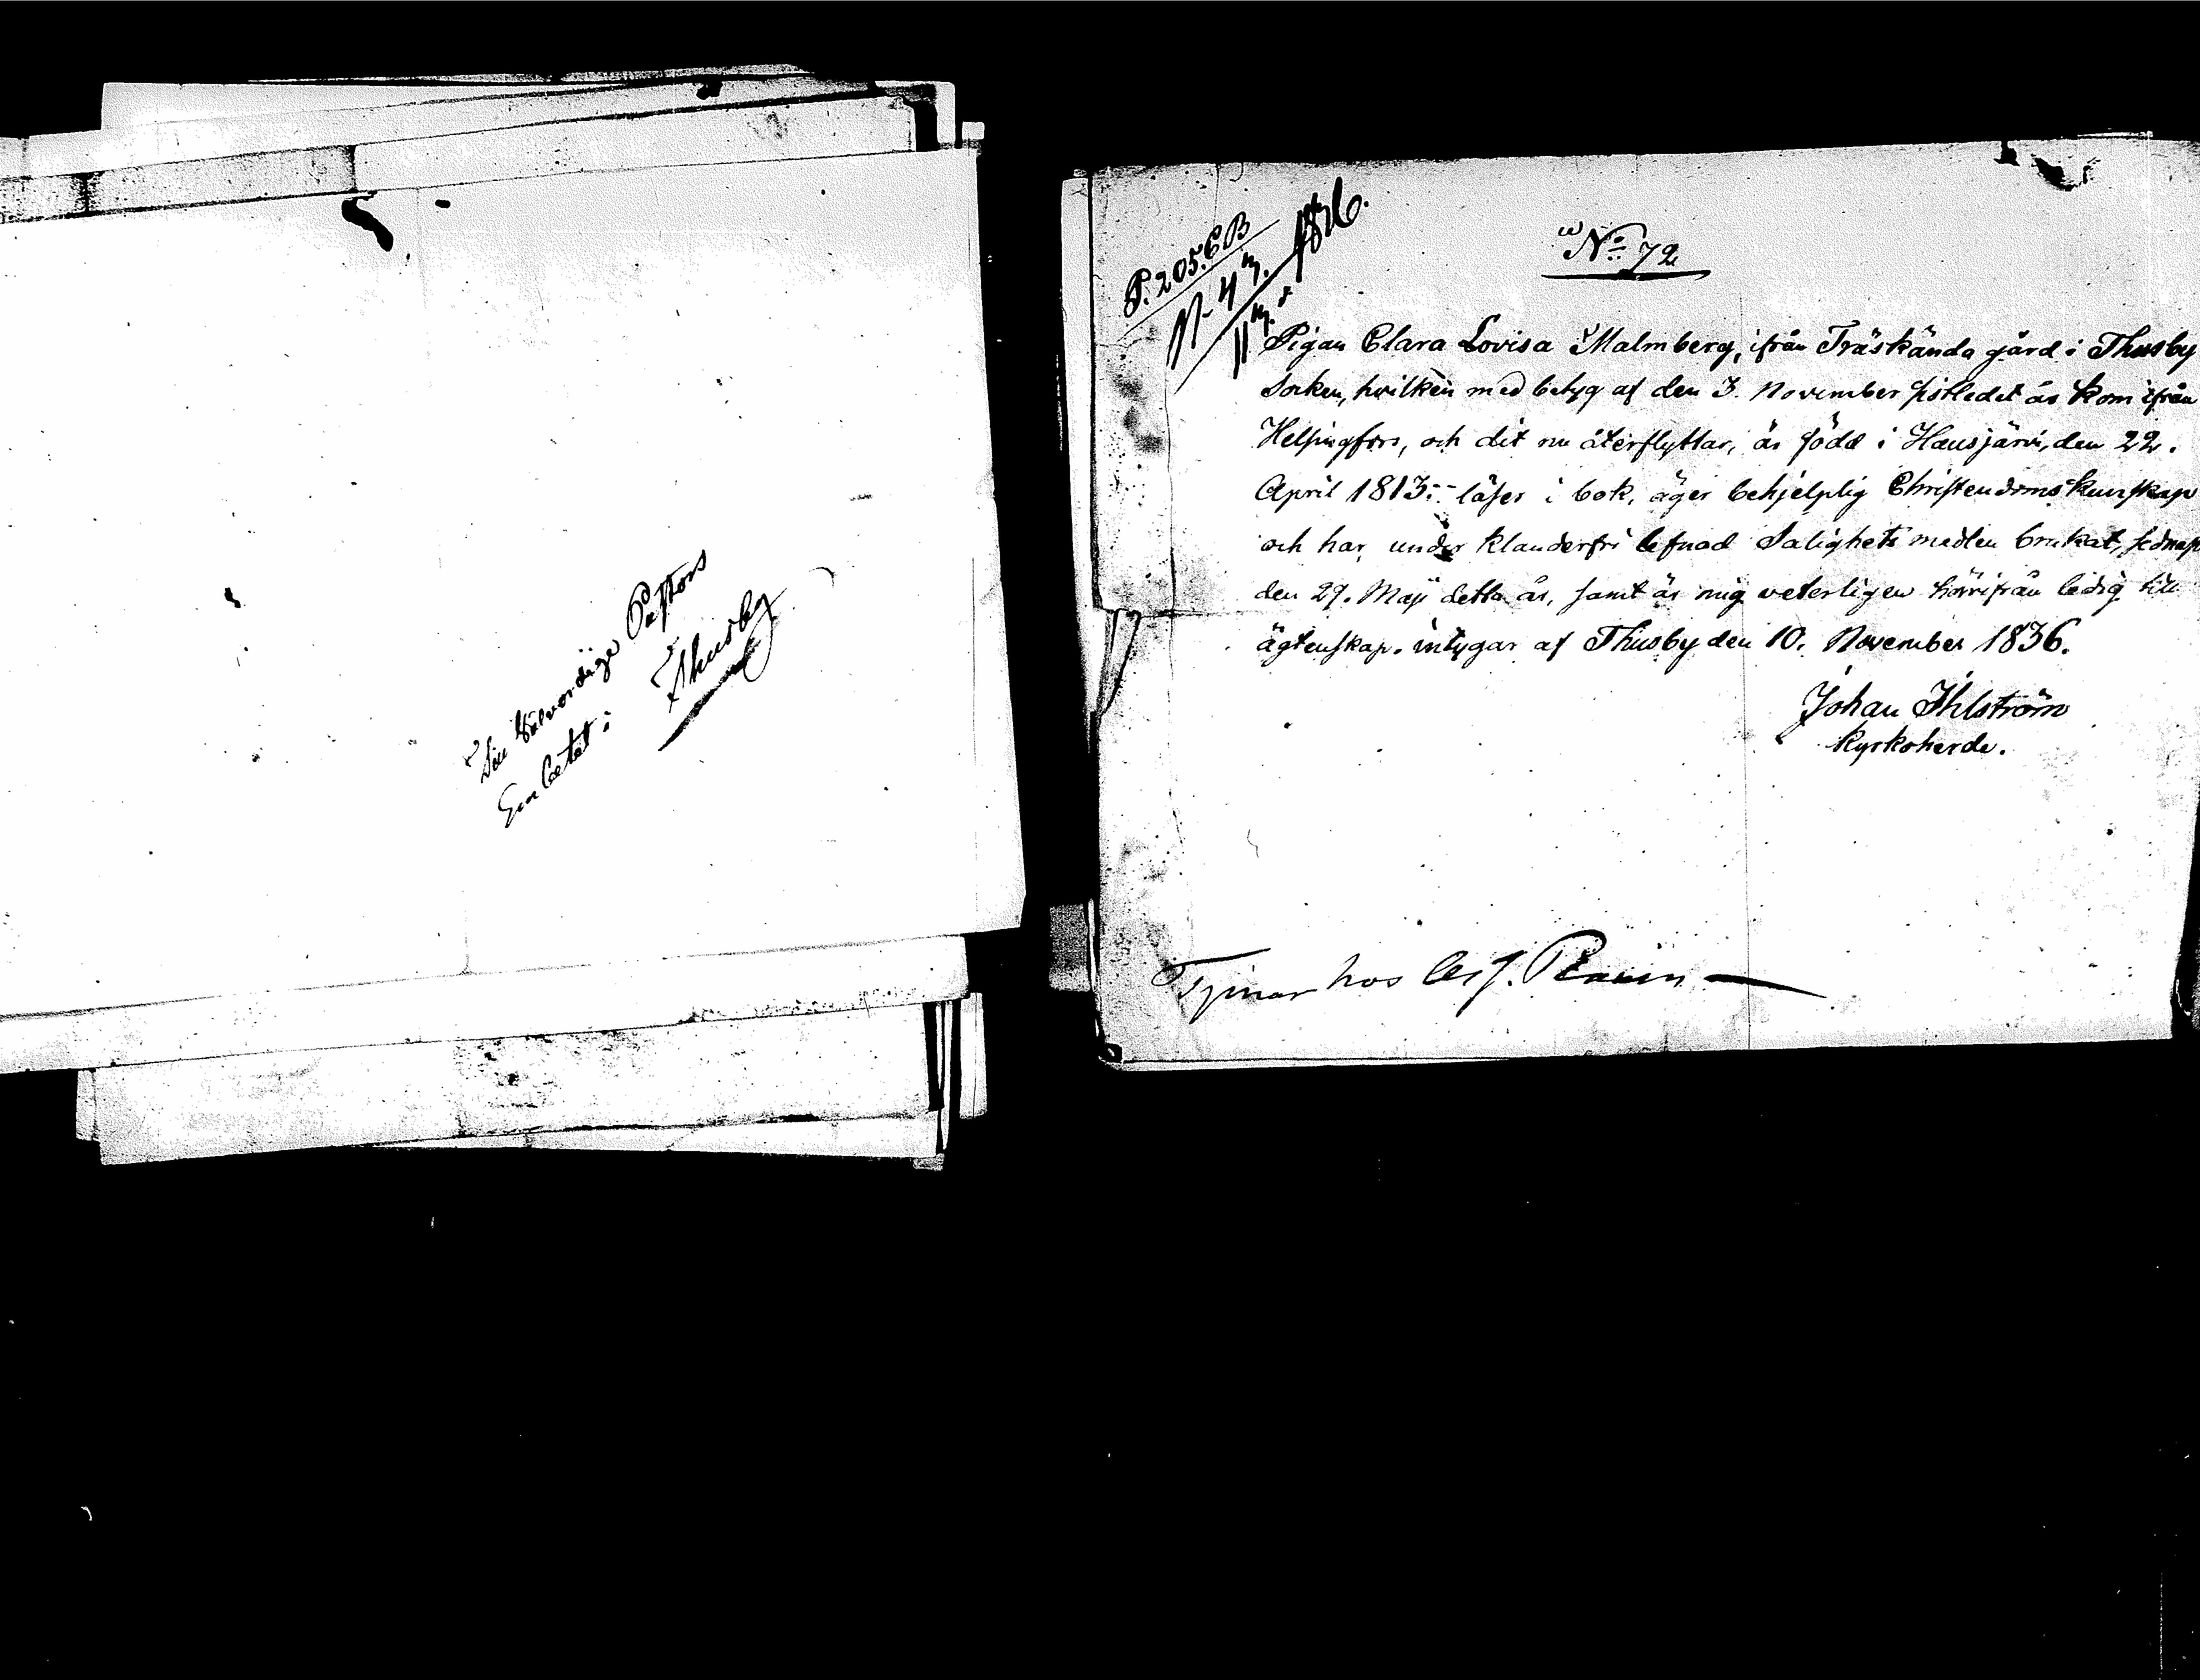 Till Välvördige Pastors
Embetet i Thusby
P. 205. C B
No 72
Pigan Clara Lovisa Malmberg, ifrån Träskända gård i Thusby
Socken, hvilken med betyg af den 3. November sistledet år kom ifrån
Helsingfors, och dit nu återflyttar, är född i Hausjärvi, den 22.
April 1813:- läser i bok, äger behjelplig Christendoms kunskap
och har, under klanderfri lefnad Salighets medlen brukat, sednast
den 29. Maji detta år, samt är mig veterligen härifrån ledig till
ägtenskap. intygar af Thusby den 10. November 1836.
Johan Ihlström
Kyrkoherde.
Tjenar hos